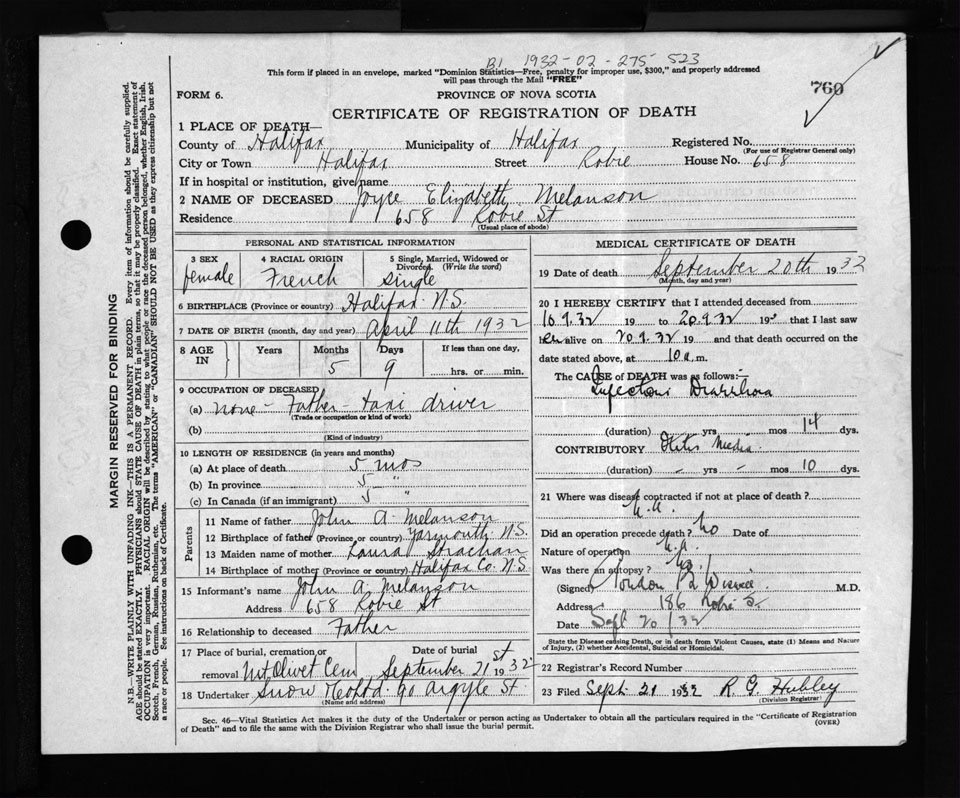 B1 1932-02-275-523
This form if placed in an envelope, marked "Dominion Statistics—Free, penalty for improper use, $300," and properly addressed
will pass through the Mail "FREE"
760
FORM 6.
PROVINCE OF NOVA SCOTIA
CERTIFICATE OF REGISTRATION OF DEATH
1 PLACE OF DEATH—
County of Halifax Municipality of Halifax Registered No.
(For use of Registrar General only)
City or Town Halifax Street Robie House No. 658
If in hospital or institution, give name
2 NAME OF DECEASED Joyce Elizabeth Melanson
Residence 658 Robie St
(Usual place of abode)
PERSONAL AND STATISTICAL INFORMATION
3 SEX 4 RACIAL ORIGIN 5 Single, Married, Widowed or
Divorced (Write the word)
female French single
6 BIRTHPLACE (Province or country) Halifax N.S.
7 DATE OF BIRTH (month, day and year) April 11th 1932
8 AGE IN Years Months Days If less than one day,
5 9 hrs. or min.
9 OCCUPATION OF DECEASED
(a) none - Father - taxi driver
(Trade or occupation or kind of work)
(b)
(Kind of industry)
10 LENGTH OF RESIDENCE (in years and months)
(a) At place of death 5 mos
(b) In province 5 "
(c) In Canada (if an immigrant) 5 "
Parents
11 Name of father John A. Melanson
12 Birthplace of father (Province or country) Yarmouth N.S.
13 Maiden name of mother Laura Strachan
14 Birthplace of mother (Province or country) Halifax Co. N.S
15 Informant's name John A. Melanson
Address 658 Robie St
16 Relationship to deceased Father
17 Place of burial, cremation or Date of burial
removal Mt Olivet Cem September 21st 1932
18 Undertaker Snow 90 Argyle St
(Name and address)
MEDICAL CERTIFICATE OF DEATH
19 Date of death September 20th 1932
(Month, day and year)
20 I HEREBY CERTIFY that I attended deceased from
16.9.32 19 to 20.9.32 19 that I last saw
her alive on 20.9.32 19 and that death occurred on the
date stated above, at 10 a.m.
The CAUSE of DEATH was as follows:—
Infectious Diarrhoea
(duration) yrs mos 14 dys.
CONTRIBUTORY Otitis Media
(duration) - yrs - mos 10 dys.
21 Where was disease contracted if not at place of death?
N.A.
Did an operation precede death? No Date of
Nature of operation N.A.
Was there an autopsy? No
(Signed) Wiswell M.D.
Address 186 Robie St.
Date Sept 20/32
State the Disease causing Death, or in death from Violent Causes, state (1) Means and Nature
of Injury, (2) whether Accidental, Suicidal or Homicidal.
22 Registrar's Record Number
23 Filed Sept. 21 1932 R. G. Hubley
(Division Registrar)
Sec. 46—Vital Statistics Act makes it the duty of the Undertaker or person acting as Undertaker to obtain all the particulars required in the "Certificate of Registration
of Death" and to file the same with the Division Registrar who shall issue the burial permit.
(OVER)
MARGIN RESERVED FOR BINDING
N.B.—WRITE PLAINLY WITH UNFADING INK—THIS IS A PERMANENT RECORD. Every item of information should be carefully supplied.
AGE should be stated EXACTLY. PHYSICIANS should STATE CAUSE OF DEATH in plain terms, so that it may be properly classified. Exact statement of
OCCUPATION is very important. RACIAL ORIGIN will be described by stating to what people or race the deceased person belonged, whether English, Irish,
Scotch, French, German, Russian, Ruthenian, etc. The terms "AMERICAN" or "CANADIAN" SHOULD NOT BE USED as they express citizenship but not
a race or people. See instructions on back of Certificate.